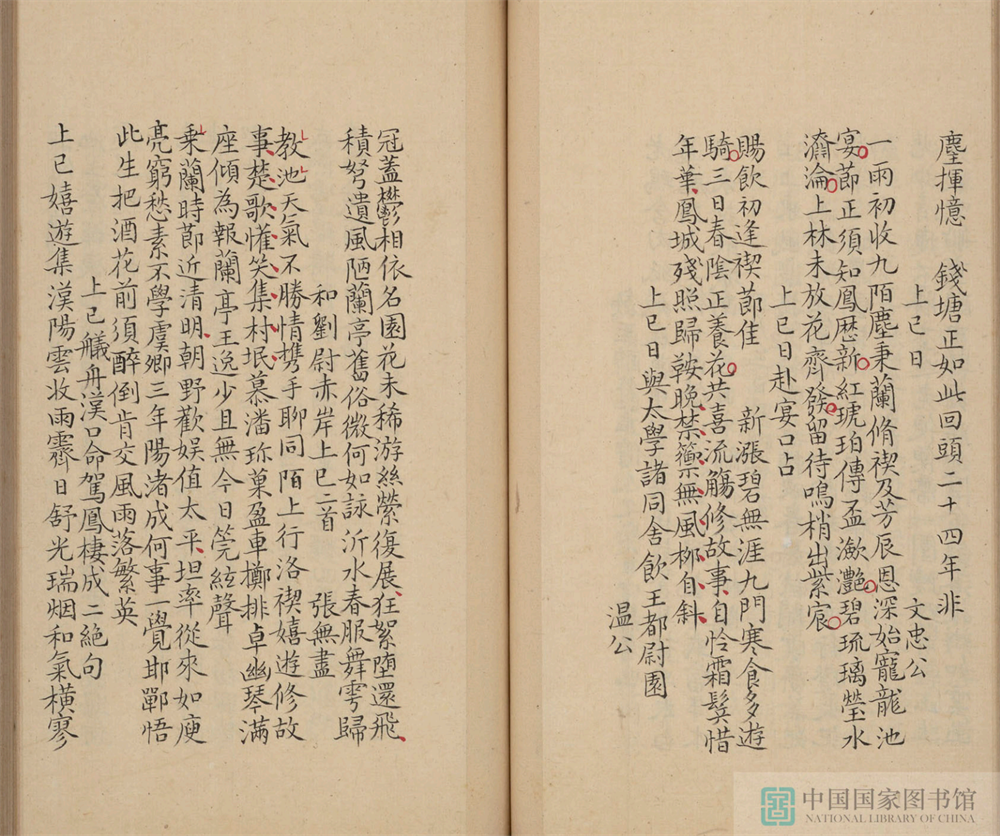 塵揮憶　錢塘正如此回頭二十四年非
上巳日　文忠公
一雨初收九陌塵秉蘭脩禊及芳辰恩深始寵龍池
宴莭正須知鳳歴新紅琥珀傳盃瀲灔碧琉璃瑩水
濟淪上林未放花齊發留待鳴梢出紫宸
上巳日赴宴口占
賜飲初逢禊莭佳　新漲碧無涯九門寒食多遊
騎三日春陰正養花共喜流觴修故事自怜霜鬓惜
年華鳳城殘照歸鞍晚禁籞無風栁自斜
上巳日與太學諸同舍飲王都尉園
温公
冠蓋鬱相依名園花未稀游絲縈復展狂絮堕還飛
積弩遺風陋蘭亭舊俗微何如詠沂水春服舞雩歸
和劉尉赤岸上巳二首　張無盡
教池天氣不勝情携手聊同陌上行洛禊嬉遊修故
事楚歌懽笑集村垊慕潘珎菓盈車擲排卓幽琴滿
座傾為報蘭亭王逸少且無今日筦絃聲
乗蘭時莭近清明朝野歡娱值太平坦率從來如庾
亮窮愁素不學虞卿三年陽渚成何事一覺邯鄲悟
此生把酒花前須醉倒肯交風雨落繁英
上巳艤舟漢口命駕鳳棲成二絶句
上巳嬉遊集漢陽雲收雨霽日舒光瑞烟和氣横寥
中国国家图书馆
NATIONAL LIBRARY OF CHINA